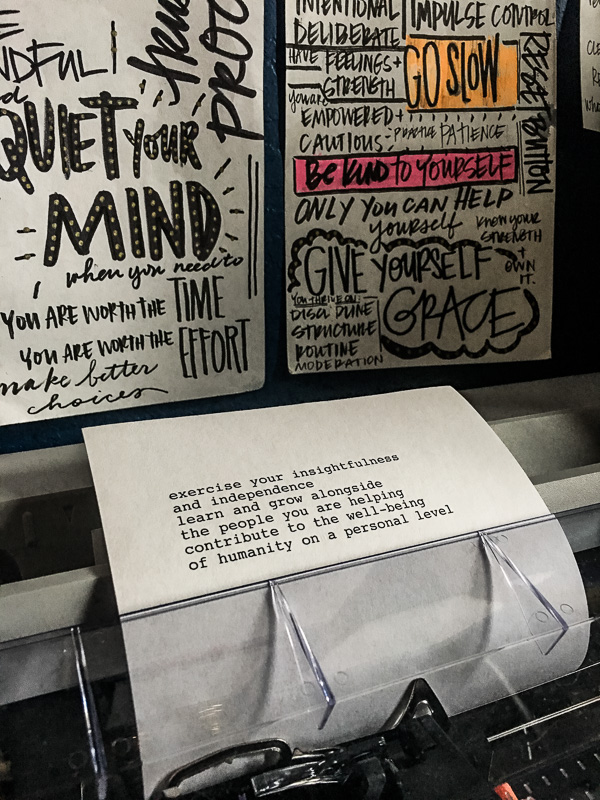 QUIET YOUR
MIND
when you need to
YOU ARE WORTH THE TIME
YOU ARE WORTH THE EFFORT
make better
choices
INTENTIONAL
DELIBERATE
HAVE FEELINGS+
STRENGTH
EMPOWERED+
CAUTIOUS:
IMPULSE CONTROL
GO SLOW
RESET BUTTON
PRACTICE PATIENCE
BE KIND TO YOURSELF
ONLY YOU CAN HELP
yourself
KNOW YOUR
STRENGTH
+ OWN
IT.
GIVE YOURSELF
GRACE
YOU THRIVE ON:
DISCIPLINE
STRUCTURE
ROUTINE
MODERATION
exercise your insightfulness
and independence
learn and grow alongside
the people you are helping
contribute to the well-being
of humanity on a personal level